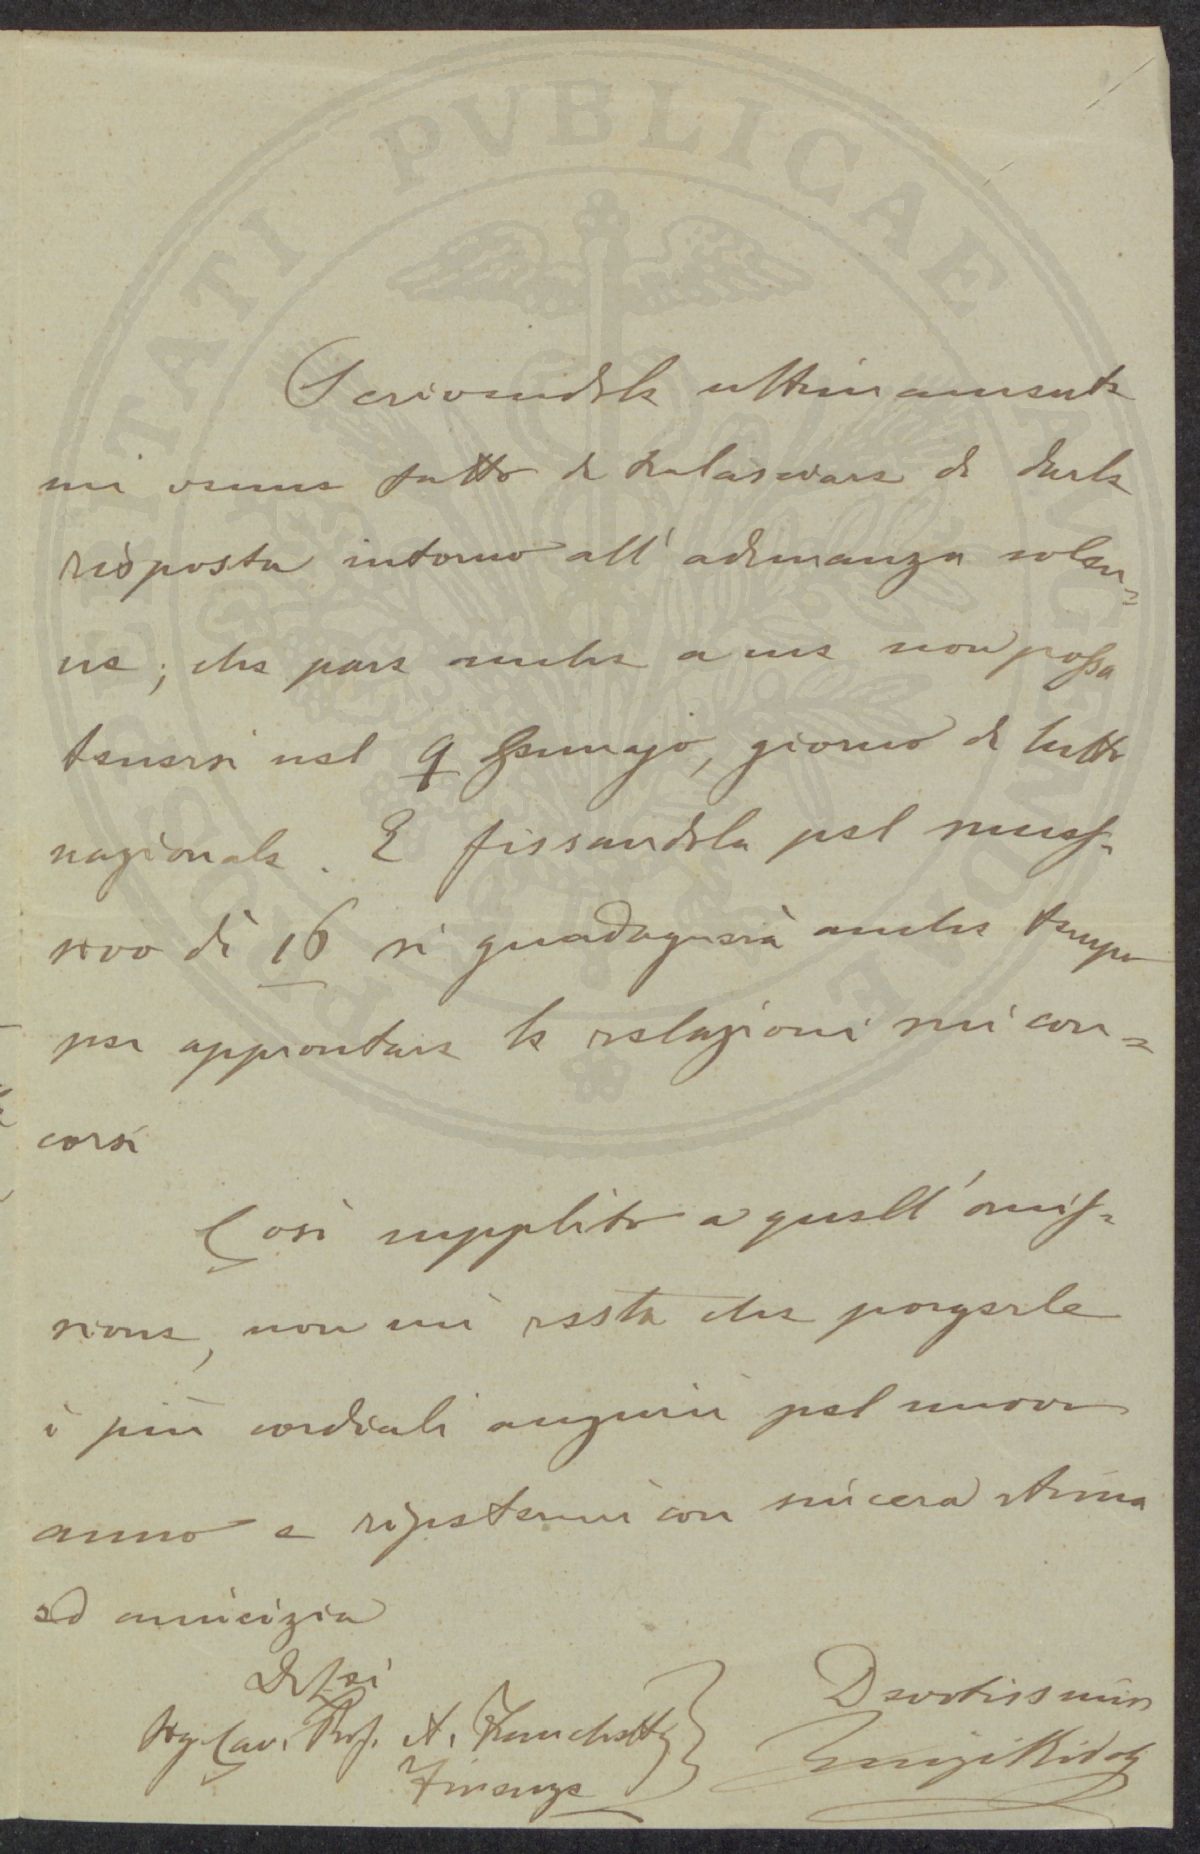 PROSPERITATI PVBLICAE AVGENDAE
Scrivendole ultimamente
mi venne fatto di tralasciare di darle
risposta intorno all' adunanza solen=
ne; che pare anche a me non possa
tenersi nel 9 Gennajo, giorno di lutto
nazionale. E fissandola pel succes=
sivo dì 16 si guadagnerà anche tempo
per approntare le relazioni sui con=
corsi
Così supplito a quell' omis=
sione, non mi resta che porgerle
i più cordiali augurii pel nuovo
anno e ripetermi con sincera stima
ed amicizia
Di Lei
Sig. Cav. Prof. A. Franchetti
Firenze
Devotissimo
Luigi Ridolfi